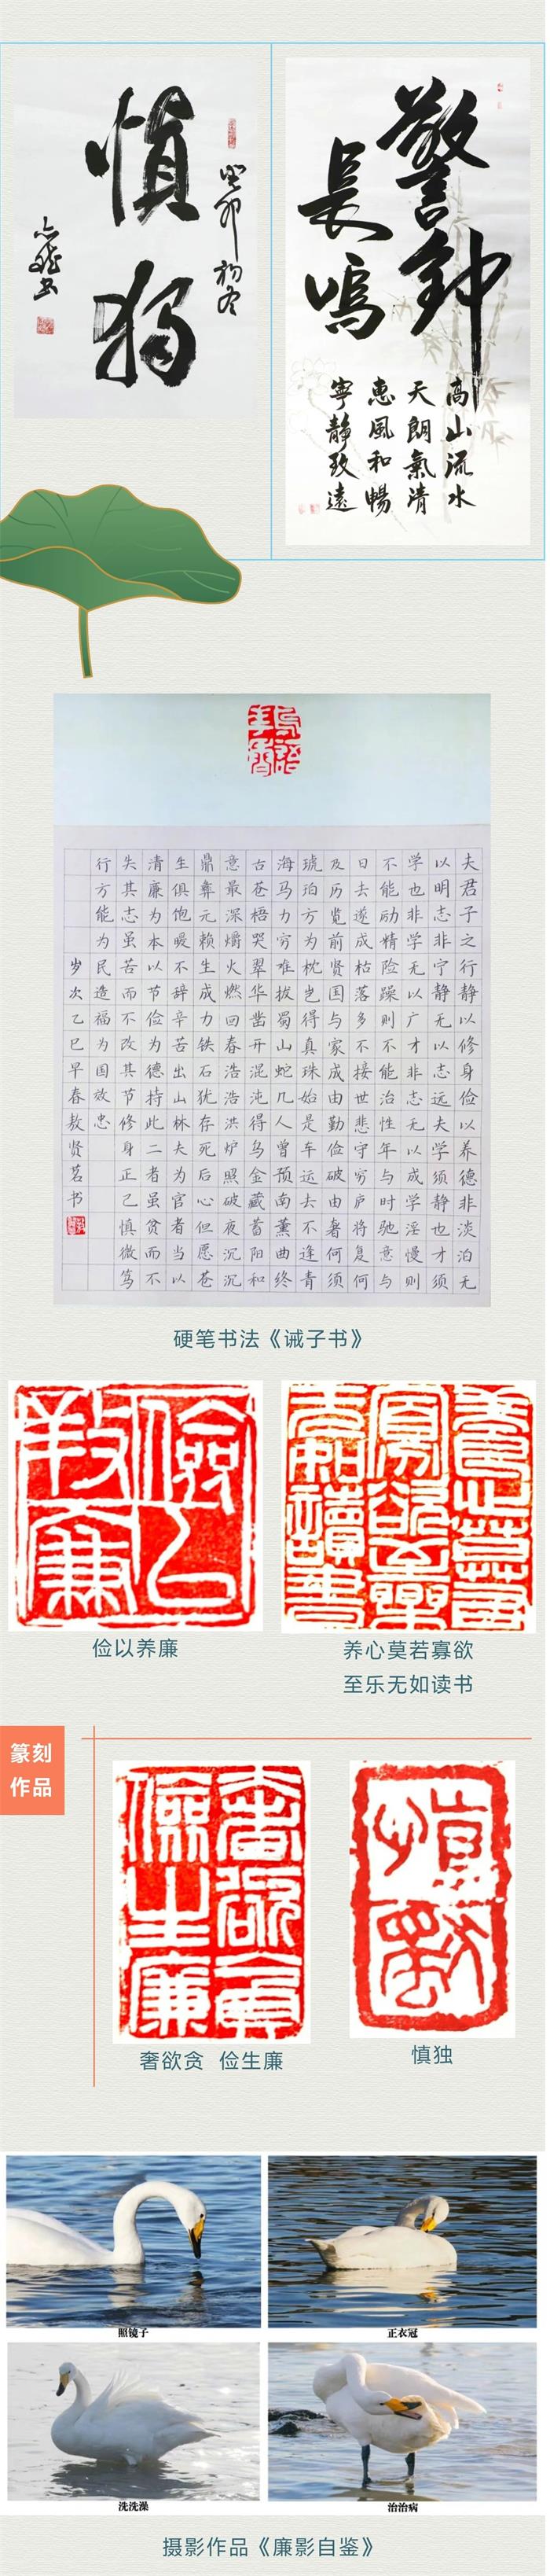 癸卯初冬
慎独
警鐘
長鳴
高山流水
天朗氣清
惠風和暢
寧靜致遠
夫君子之行静以修身俭以养德非淡泊无
以明志非宁静无以志远夫学须静也才须
学也非学无以广才非志无以成学淫慢则
不能励精险躁则不能治性年与时驰意与
日去遂成枯落多不接世悲守穷庐将复何
及历览前贤国与家成由勤俭破由奢何须
琥珀方为枕岂得真珠始是车运去不逢青
海马力穷难拔蜀山蛇几人曾预南薰曲终
古苍梧哭翠华凿开混沌得乌金藏蓄阳和
意最深爝火燃回春浩浩洪炉照破夜沉沉
鼎彝元赖生成力铁石犹存死后心但愿苍
生俱饱暖不辞辛苦出山林夫为官者当以
清廉为本以节俭为德持此二者虽贫而不
失其志虽苦而不改其节修身正己慎微笃
行方能为民造福为国效忠
岁次乙巳早春敖贤茗书
硬笔书法《诫子书》
俭以养廉
养心莫若寡欲
至乐无如读书
篆刻
作品
奢欲贪 俭生廉
慎独
照镜子
正衣冠
洗洗澡
治治病
摄影作品《廉影自鉴》